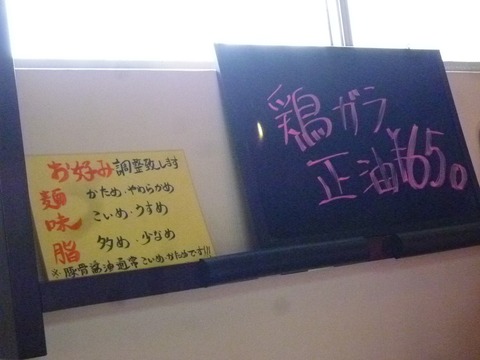 お好み調整致します
麺 かため・やわらかめ
味 こいめ・うすめ
脂 多め・少なめ
※豚骨醤油通常こいめかためです!!
鶏ガラ
正油¥650